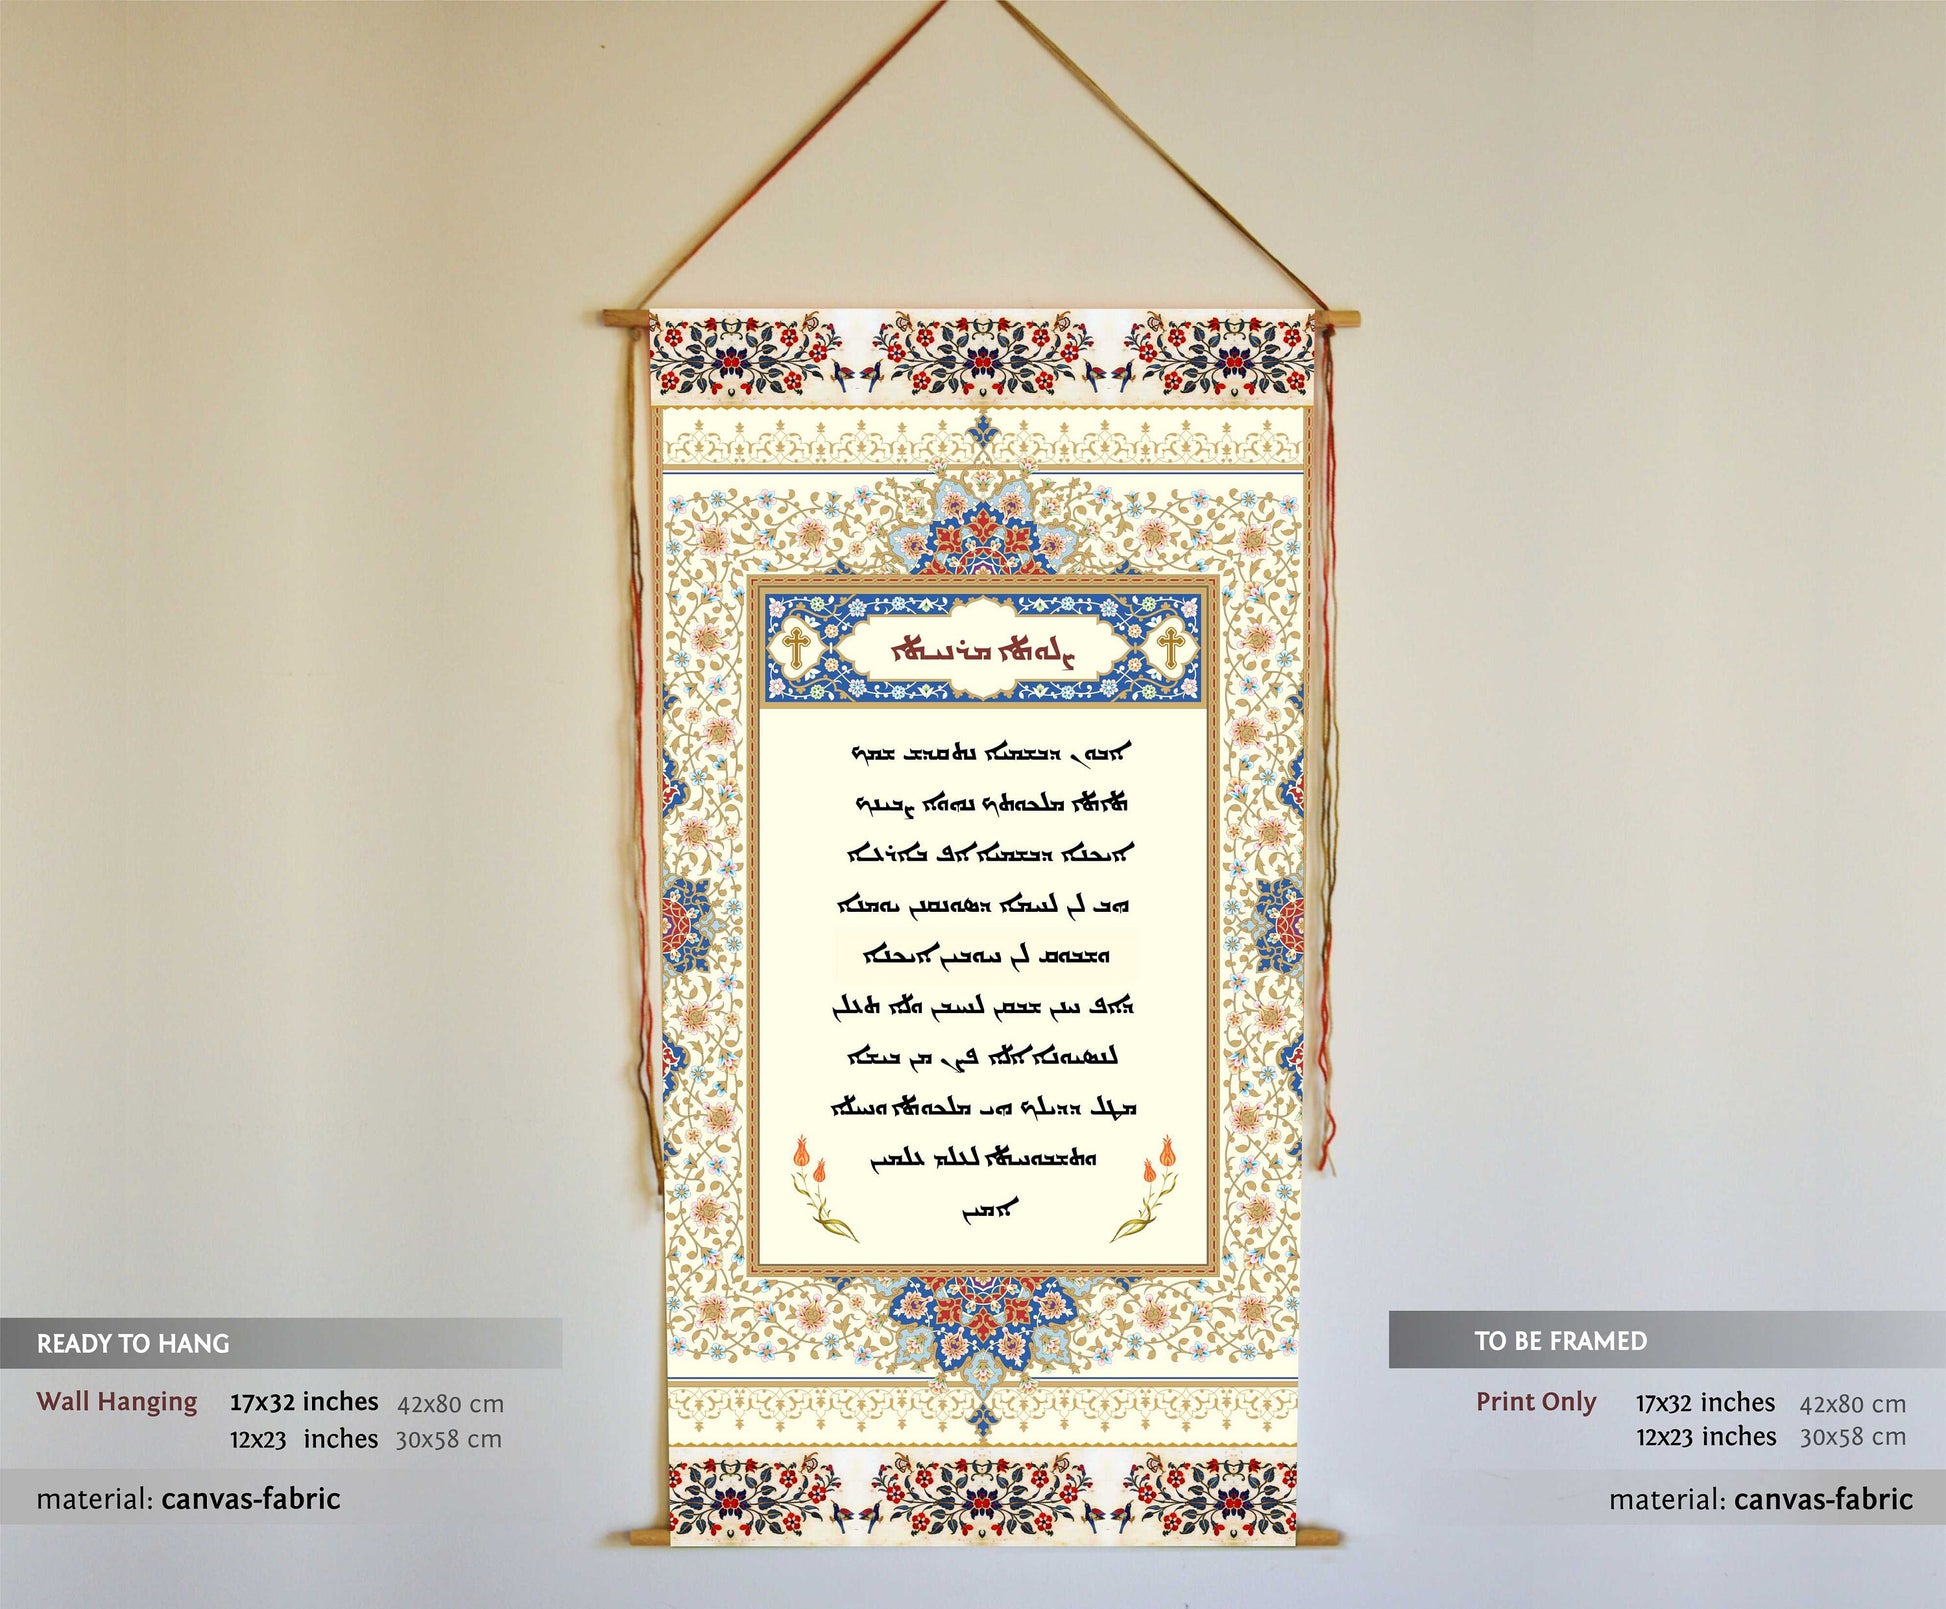 ܨܠܘܬܐ ܡܪܢܝܬܐ
ܐܒܘܢ ܕܒܫܡܝܐ ܢܬܩܕܫ ܫܡܟ
ܬܐܬܐ ܡܠܟܘܬܟ ܢܗܘܐ ܨܒܝܢܟ
ܐܝܟܢܐ ܕܒܫܡܝܐ ܐܦ ܒܐܪܥܐ
ܗܒ ܠܢ ܠܚܡܐ ܕܣܘܢܩܢܢ ܝܘܡܢܐ
ܘܫܒܘܩ ܠܢ ܚܘܒܝܢ ܐܝܟܢܐ
ܕܐܦ ܚܢܢ ܫܒܩܢ ܠܚܝܒܢ ܘܠܐ ܬܥܠܢ
ܠܢܣܝܘܢܐ ܐܠܐ ܦܨܢ ܡܢ ܒܝܫܐ
ܡܛܠ ܕܕܝܠܟ ܗܝ ܡܠܟܘܬܐ ܘܚܝܠܐ
ܘܬܫܒܘܚܬܐ ܠܥܠܡ ܥܠܡܝܢ
ܐܡܝܢ
READY TO HANG
Wall Hanging 17x32 inches 42x80 cm
12x23 inches 30x58 cm
material: canvas-fabric
TO BE FRAMED
Print Only 17x32 inches 42x80 cm
12x23 inches 30x58 cm
material: canvas-fabric